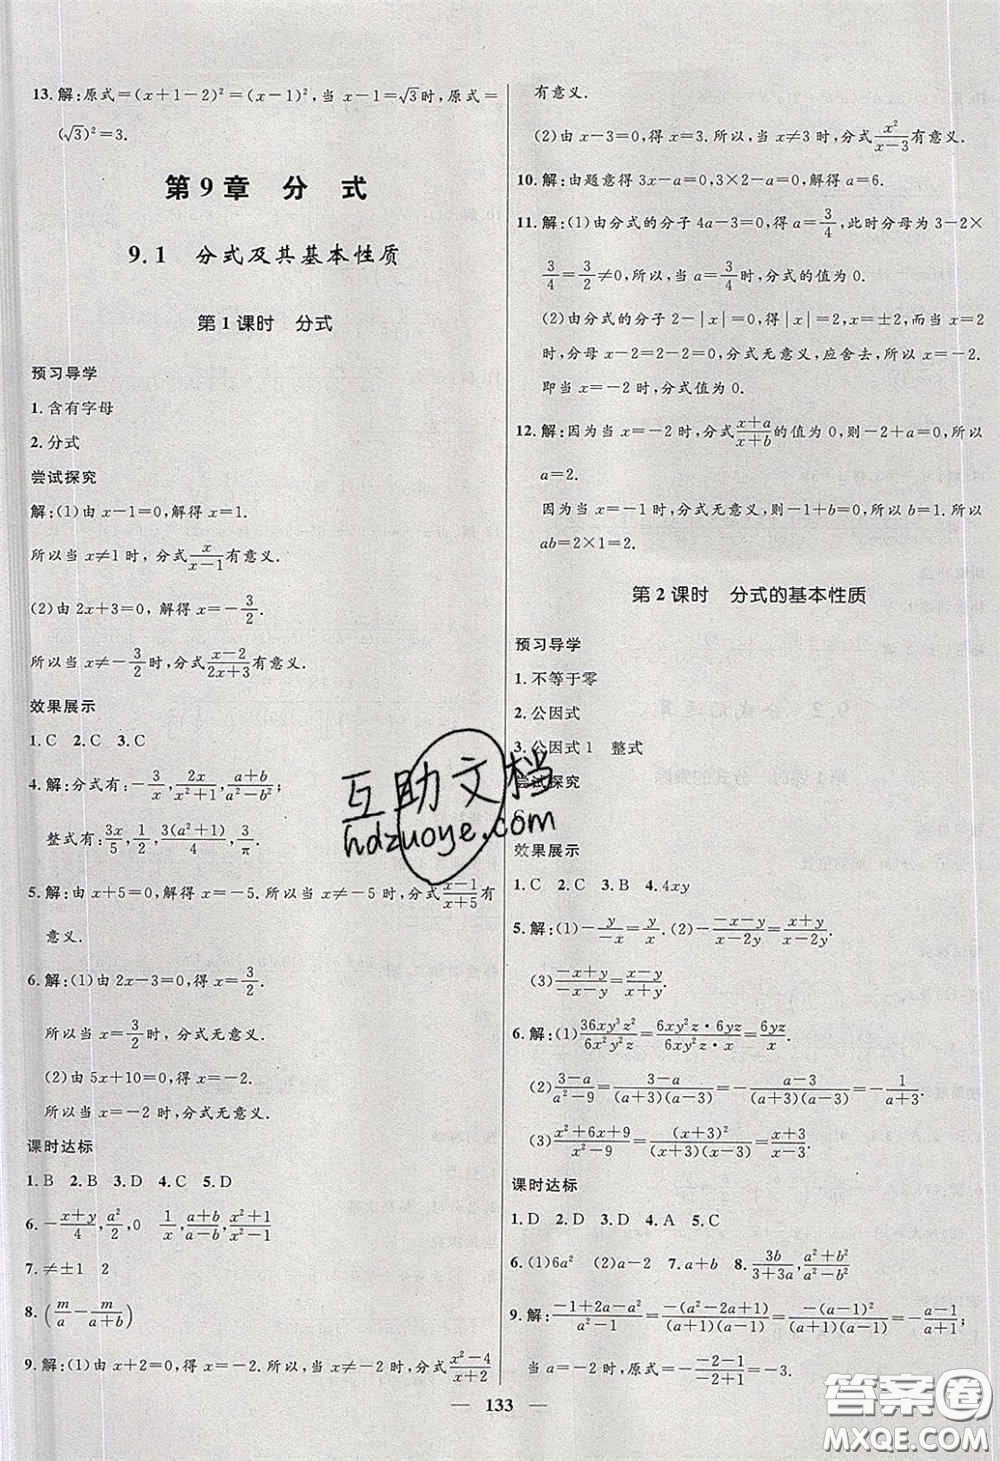 13. 解:原式=(x+1-2)²=(x-1)²,当 x-1=√3时,原式=
(√3)²=3.
第9章 分 式
9.1 分式及其基本性质
第1课时 分式
预习导学
1. 含有字母
2. 分式
尝试探究
解:(1)由 x-1=0,解得 x=1.
所以当 x≠1 时,分式x/(x-1)有意义.
(2)由 2x+3=0,解得 x=-3/2.
所以当 x≠-3/2时,分式(x-2)/(2x+3)有意义.
效果展示
1. C 2. C 3. C
4. 解:分式有:-3/x,2x/(x²+1),(a+b)/(a²-b²);
整式有:3x/5,1/2,3(a²+1)/4,3/π.
5. 解:由 x+5=0,解得 x=-5.所以当 x≠-5 时,分式(x-1)/(x+5)有
意义.
6. 解:(1)由 2x-3=0,得 x=3/2.
所以当 x=3/2时,分式无意义.
(2)由 5x+10=0,得 x=-2.
所以当 x=-2 时,分式无意义.
课时达标
1. B 2. B 3. D 4. C 5. D
6. -(x+y)/4,a²/2,0 1/x,(a+b)/(a-b),(x²+1)/(x²-1)
7. ≠±1 2
8. (m/a-m/(a+b))
9. 解:(1)由 x+2=0,得 x=-2.所以,当 x≠-2 时,分式(x²-4)/(x+2)
有意义.
(2)由 x-3=0,得 x=3.所以,当 x≠3 时,分式x²/(x-3)有意义.
10. 解:由题意得 3x-a=0,3×2-a=0,解得 a=6.
11. 解:(1)由分式的分子 4a-3=0,得 a=3/4,此时分母为 3-2×
3/4=3/2≠0,所以,当 a=3/4时,分式的值为 0.
(2)由分式的分子 2-|x|=0,得|x|=2,x=±2,而当 x=
2时,分母-x-2=-2-2=0,分式无意义,应舍去,所以 x=-2.
即当 x=-2 时,分式值为 0.
12. 解:因为当 x=-2 时,分式(x+a)/(x+b)的值为 0,则-2+a=0,所以
a=2.
因为当 x=-1 时,分式无意义,则-1+b=0,所以 b=1.所以
ab=2×1=2.
第2课时 分式的基本性质
预习导学
1. 不等于零
2. 公因式
3. 公因式1 整式
尝试探究
C
效果展示
1. C 2. C 3. B 4. 4xy
5. 解:(1)-y/(-x)=y/x. (2)-(-x-y)/(x-2y)=(x+y)/(x-2y).
(3)(-x+y)/(-x-y)=(x-y)/(x+y).
6. 解:(1)36xy³z²/6x²y²z=(6xy²z·6yz)/(6xy²z·x)=6yz/x.
(2)(3-a)/(a²-9)=(3-a)/((a+3)(a-3))=-(a-3)/((a+3)(a-3))=-1/(a+3).
(3)(x²+6x+9)/(x²-9)=(x+3)²/((x+3)(x-3))=(x+3)/(x-3).
课时达标
1. D 2. D 3. D 4. A 5. C
6. (1)6a² (2)a-2 7. a+b 8. 3b/(3+3a),(a²+b²)/(a²-b²)
9. 解:(-1+2a-a²)/(a²-1)=-(a²-2a+1)/((a+1)(a-1))=-(a-1)²/((a+1)(a-1))=-(a-1)/(a+1);
当 a=-2 时,原式=-(-2-1)/(-2+1)=-3.
133
互助文档
hdzuoye.com
答案圈
MXQE.COM